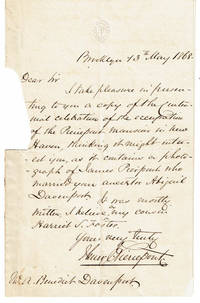 Brooklyn 13th May 1868.
Dear Sir
I take pleasure in presen-
ting to you a copy of the Centen-
nial celebration of the occupation
of the Pierpont Mansion in New
Haven thinking it might inter-
est you, as it contains a photo-
graph of James Pierpont who
married your ancestor Abigail
Davenport. It was mostly
written I believe by my cousin
Harriet S. Foster.
Yours very truly
Henry E. Pierrepont
A. Benedict Davenport